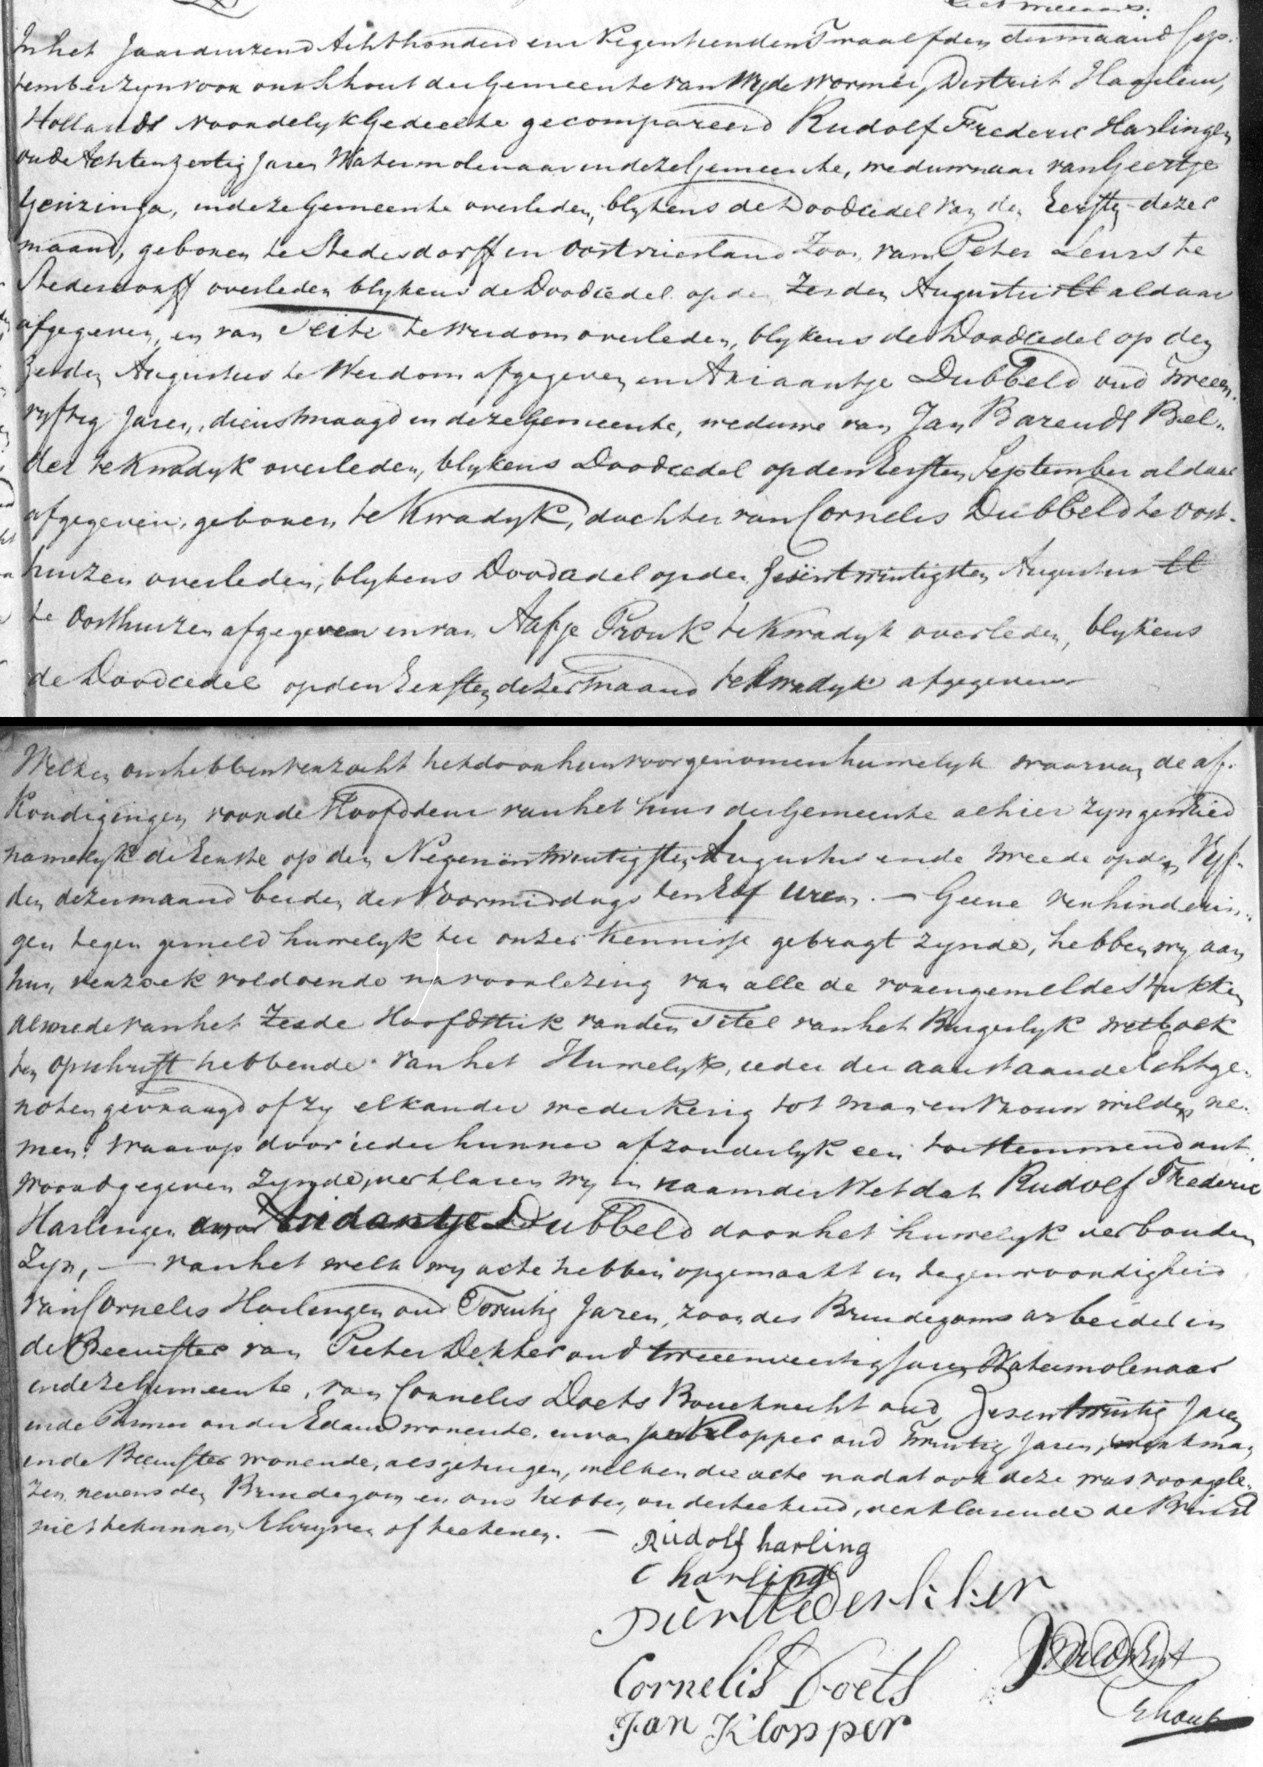 In het Jaar duizend Achthonderd en Negentienden Twaalfden der maand Sep-
tember zyn voor ons Schout der Gemeente van Wyde Wormer, District Haarlem,
Hollands Noordelyk Gedeelte gecompareerd Rudolf Frederic Harlingen
oud Achtenzestig Jaren Watermolenaar in deze Gemeente, weduwnaar van Geertje
Geizinga, in deze Gemeente overleden, blykens de Doodcedel van den Eersten dezer
maand, geboren te Stedesdorff in Oostvriesland Zoon van Peter Leurs te
Stedesdorff overleden blykens de Doodcedel op den Zesden Augustus ll aldaar
afgegeven, en van te Werdom overleden, blykens de Doodcedel op den
Zesden Augustus te Werdom afgegeven en Ariaantje Dubbeld oud Tweeen-
vyftig Jaren, dienstmaagd in deze Gemeente, weduwe van Jan Barends Bel-
der te Kwadyk overleden, blykens Doodcedel op den Eersten September aldaar
afgegeven, geboren te Kwadyk, dochter van Cornelis Dubbeld te Oost-
huizen overleden, blykens Doodcedel op den Zesentwintigsten Augustus ll
te Oosthuizen afgegeven en van Aafje Pronk te Kwadyk overleden, blykens
de Doodcedel op den Eersten dezer maand te Kwadyk afgegeven
Welken ons hebben verzocht het door hun voorgenomen huwelyk waarvan de af-
kondigingen voor de Hoofddeur van het huis der Gemeente alhier zyn geschied
namelyk de Eerste op den Negenentwintigsten Augustus en de tweede op den Vyf-
den dezer maand beiden des Voormiddags ten Elf uren. — Geene verhinderin-
gen tegen gemeld huwelyk ter onzer kennisse gebragt zynde, hebben wy aan
hun verzoek voldoende na voorlezing van alle de vorengemelde Stukken
alsmede van het Zesde Hoofdstuk van den Titel van het Burgerlyk wetboek
ten opschrift hebbende van het Huwelyk, ieder der aanstaande Echtge-
noten gevraagd of zy elkander wederkerig tot man en vrouw wilden ne-
men? waarop door ieder hunner afzonderlyk een toestemmend ant-
woord gegeven zynde, verklaren wy in naam der Wet dat Rudolf Frederic
Harlingen Ariaantje Dubbeld door het huwelyk verbonden
Zyn, — van het welk wy acte hebben opgemaakt in tegenwoordigheid
van Cornelis Harlingen oud Twintig Jaren, zoon des Bruidegoms arbeider in
de Beemster van Pieter Dekker oud tweeenveertig Jaren Watermolenaar
in deze Gemeente, van Cornelis Doets Bouwknecht oud Zesentwintig Jaren
in de Purmer onder Edam wonende, en van Jan Klopper oud Twintig Jaren, werkman
in de Beemster wonende, als getuigen, welken deze acte nadat aan deze was voorgele-
zen nevens den Bruidegom en ons hebben onderteekend, verklarende de Bruid
niet te kunnen Schryven of teekenen. —
Rudolf harling
C harling
Pieter Dekker
Cornelis Doets
Jan Klopper
Schout